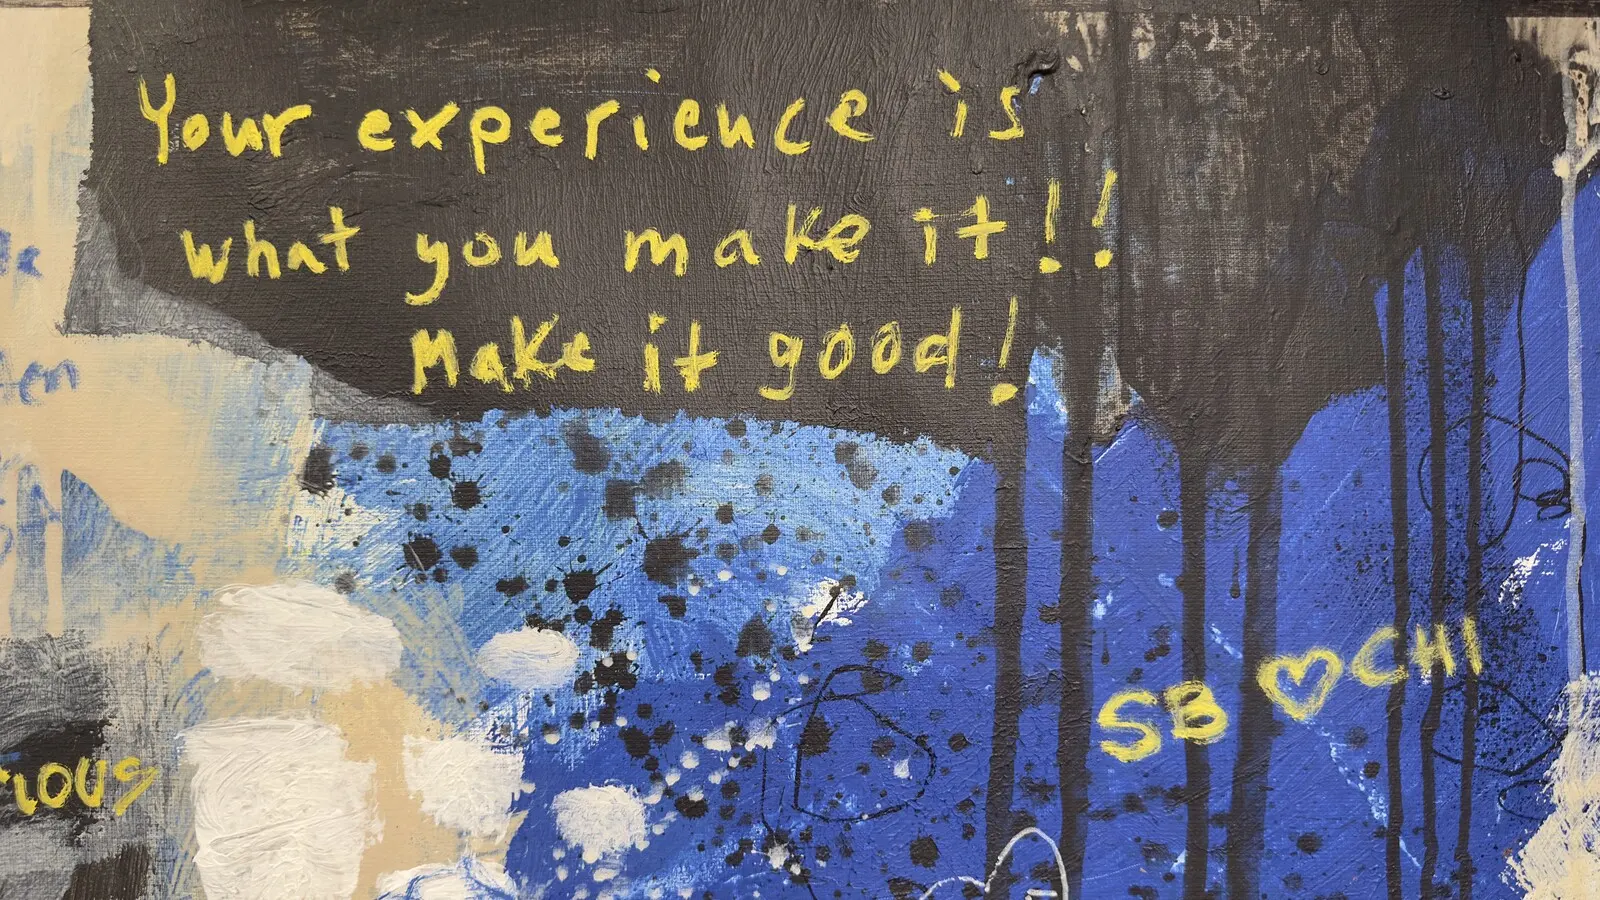 Your experience is
what you make it!!
Make it good!
SB ♡ CHI